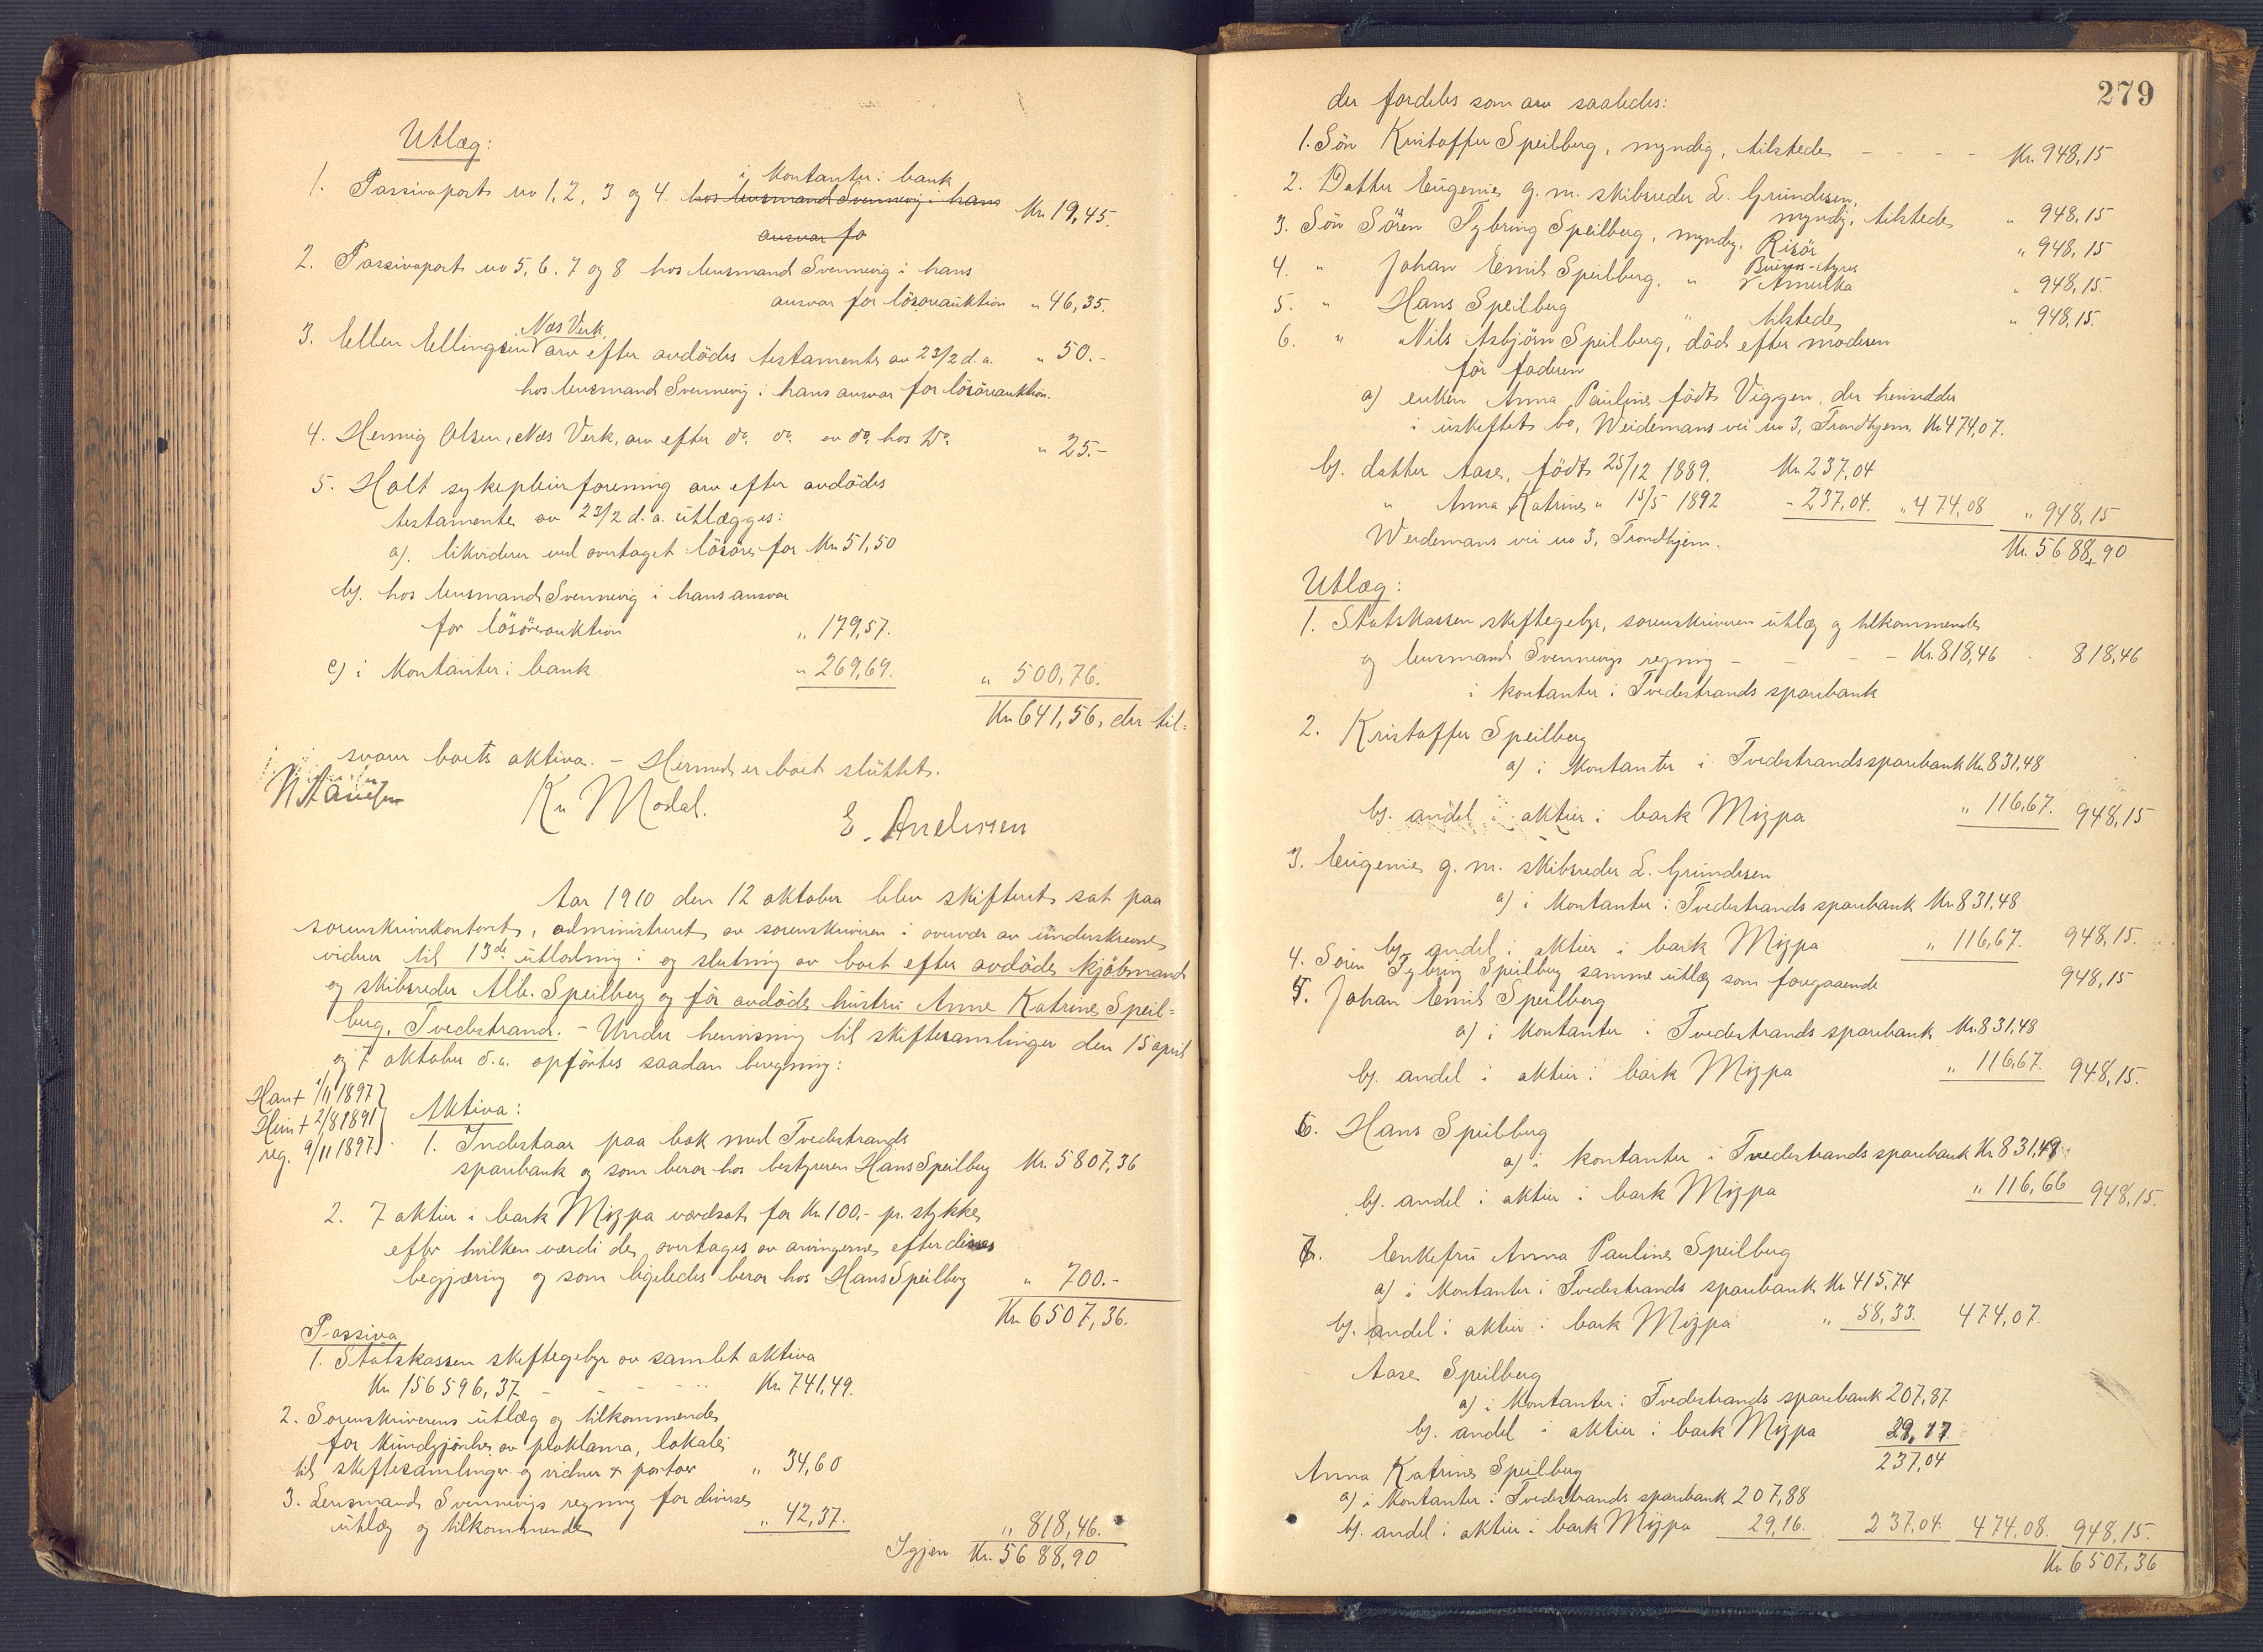 Utlæg:
i kontanter i bank
1. Passivapost no 1, 2, 3 og 4. hos lensmand Svennevig i hans Kr. 19,45.
ansvar fo
2. Passivapost no 5, 6, 7 og 8 hos lensmand Svennevig i hans
ansvar for lösöreauktion " 46,35.
Næs Verk
3. Ellen Ellingsen arv efter avdödes testamente av 23/2 d.a. " 50.-
hos lensmand Svennevig i hans ansvar for lösöreauktion.
4. Olsen, Næs Verk, arv efter do. do. av do. hos Do. " 25.-
5. Holt sykepleierforening arv efter avdödes
testamente av 23/2 d.a. utlægges:
a). likviderer ved overtaget lösöre for Kr. 51,50
b). hos lensmand Svennevig i hans ansvar
for lösöreauktion " 179,57.
c) i kontanter i bank " 269,69. " 500,76.
Kr. 641,56, der til=
svarer boets aktiva. - Hermed er boet sluttet.
Kn Modal. E. Andersen
Aar 1910 den 12 oktober blev skifteret sat paa
sorenskriverkontoret, administreret av sorenskriveren i overvær av underskrevne
vidner til 13de utlodning i og slutning av boet efter avdöde kjöbmand
og skibsreder Alb. Speilberg og för avdöde hustru Anne Katrine Speil=
berg, Tvedestrand. - Under henvisning til skiftesamlinger den 15 april
og 7 oktober d.a. opförtes saadan beregning:
Han + 1/11 1897
Hun + 2/8 1891
reg. 9/11 1897
Aktiva:
1. Indestaar paa bok med Tvedestrands
sparebank og som beror hos bestyreren Hans Speilberg Kr. 5807,36
2. 7 aktier i bark Mizpa værdsat for Kr. 100,- pr. stykke
efter hvilken værdi de overtages av arvingerne efter disses
begjæring og som ligeledes beror hos Hans Speilberg " 700.-
Kr. 6507,36.
Passiva
1. Statskassen skiftegebyr av samlet aktiva
Kr. 156596,37 - - - Kr. 741,49.
2. Sorenskriverens utlæg og tilkommende
for kundgjörelse av proklama, lokale
til skiftesamlinger og vidner & portoer " 34,60
3. Lensmand Svennevigs regning for diverse
utlæg og tilkommende " 42,37. " 818,46.
Igjen Kr. 5688,90
279
der fordeles som arv saaledes:
1. Sön Kristoffer Speilberg, myndig, tilstede - - - - Kr. 948,15
2. Datter Eugenie g. m. skibsreder L. Grundesen,
myndig, tilstede " 948,15
3. Sön Sören Tybring Speilberg, myndig, Risör " 948,15
4. " Johan Emil Speilberg, " Buenos-Ayres
Amerika " 948,15.
5. " Hans Speilberg " tilstede " 948,15.
6. " Nils Asbjörn Speilberg, död efter moderen
för faderen
a) enken Anna Pauline född Viggen, der hensidder
i uskiftet bo, Weidemans vei no 3, Trondhjem, Kr. 474,07.
b). datter Aase, född 25/12 1889. Kr. 237,04
" Anna Katrine " 15/5 1892 - 237,04. " 474,08 " 948,15
Weidemans vei no 3, Trondhjem. Kr. 5688,90
Utlæg:
1. Statskassen skiftegebyr, sorenskriveren utlæg og tilkommende
og lensmand Svennevigs regning - - - Kr. 818,46 - 818,46
i kontanter i Tvedestrands sparebank
2. Kristoffer Speilberg
a) i kontanter i Tvedestrands sparebank Kr. 831,48
b). andel i aktier i bark Mizpa " 116,67. 948,15
3. Eugenie g. m. skibsreder L. Grundesen
a) i kontanter i Tvedestrands sparebank Kr. 831,48
b). andel i aktier i bark Mizpa " 116,67. 948,15.
4. Sören Tybring Speilberg samme utlæg som foregaaende 948,15
5. Johan Emil Speilberg
a) i kontanter i Tvedestrands sparebank Kr. 831,48
b). andel i aktier i bark Mizpa " 116,67. 948,15.
6. Hans Speilberg
a) i kontanter i Tvedestrands sparebank Kr. 831,49
b). andel i aktier i bark Mizpa " 116,66 948,15.
7. Enkefru Anna Pauline Speilberg
a) i kontanter i Tvedestrands sparebank Kr. 415,74
b). andel i aktier i bark Mizpa " 58,33. 474,07.
Aase Speilberg
a) i kontanter i Tvedestrands sparebank 207,87
b). andel i aktier i bark Mizpa 29,17
237,04
Anna Katrine Speilberg
a) i kontanter i Tvedestrands sparebank 207,88
b). andel i aktier i bark Mizpa 29,16. 237,04. 474,08. 948,15.
Kr. 6507,36